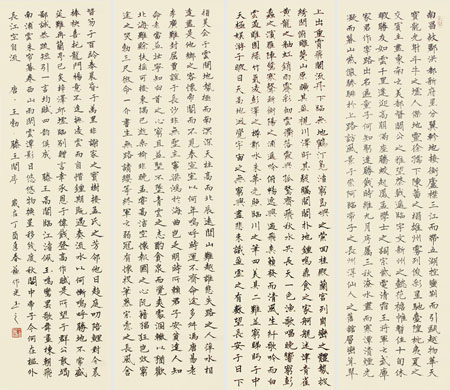 南昌故郡洪都新府星分翼軫地接衡廬襟三江而帶五湖控蠻荊而引甌越物華天
寶龍光射牛斗之墟人傑地靈徐孺下陳蕃之榻雄州霧列俊彩星馳臺隍枕夷夏之
交賓主盡東南之美都督閻公之雅望棨戟遙臨宇文新州之懿範襜帷暫駐十旬休
暇勝友如雲千里逢迎高朋滿座騰蛟起鳳孟學士之詞宗紫電清霜王將軍之武庫
家君作宰路出名區童子何知躬逢勝餞時維九月序屬三秋潦水盡而寒潭清煙光
凝而暮山紫儼驂騑於上路訪風景於崇阿臨帝子之長洲得仙人之舊館層巒聳翠
上出重霄飛閣流丹下臨無地鶴汀鳧渚窮島嶼之縈回桂殿蘭宮列岡巒之體勢披
繡闥俯雕甍山原曠其盈視川澤紆其駭矚閭閻撲地鐘鳴鼎食之家舸艦迷津青雀
黃龍之舳虹銷雨霽彩徹雲衢落霞與孤鶩齊飛秋水共長天一色漁舟唱晚響窮彭
蠡之濱雁陣驚寒聲斷衡陽之浦遙吟俯暢逸興遄飛爽籟發而清風生纖歌凝而白
雲遏睢園綠竹氣凌彭澤之樽鄴水朱華光照臨川之筆四美具二難并窮睇眄於中
天極娛遊於暇日天高地迥覺宇宙之無窮興盡悲來識盈虛之有數望長安於日下
指吳會於雲間地勢極而南溟深天柱高而北辰遠關山難越誰悲失路之人萍水相
逢盡是他鄉之客懷帝閽而不見奉宣室以何年嗚呼時運不齊命途多舛馮唐易老
李廣難封屈賈誼於長沙非無聖主竄梁鴻於海曲豈乏明時所賴君子安貧達人知
命老當益壯寧知白首之心窮且益堅不墜青雲之志酌貪泉而覺爽處涸轍以猶歡
北海雖賒扶搖可接東隅已逝桑榆非晚孟嘗高潔空懷報國之心阮籍猖狂豈效窮
途之哭勃三尺微命一介書生無路請纓等終軍之弱冠有懷投筆慕宗愨之長風舍
簪笏於百齡奉晨昏於萬里非謝家之寶樹接孟氏之芳鄰他日趨庭叨陪鯉對今晨
捧袂喜托龍門楊意不逢撫凌雲而自惜鍾期既遇奏流水以何慚嗚呼勝地不常盛
筵難再蘭亭已矣梓澤丘墟臨別贈言幸承恩於偉餞登高作賦是所望於群公敢竭
鄙誠恭疏短引一言均賦四韻俱成 滕王高閣臨江渚佩玉鳴鸞罷歌舞畫棟朝飛
南浦雲朱簾暮卷西山雨閒雲潭影日悠悠物換星移幾度秋閣中帝子今何在檻外
長江空自流 唐·王勃 滕王閣序 歲在丁酉